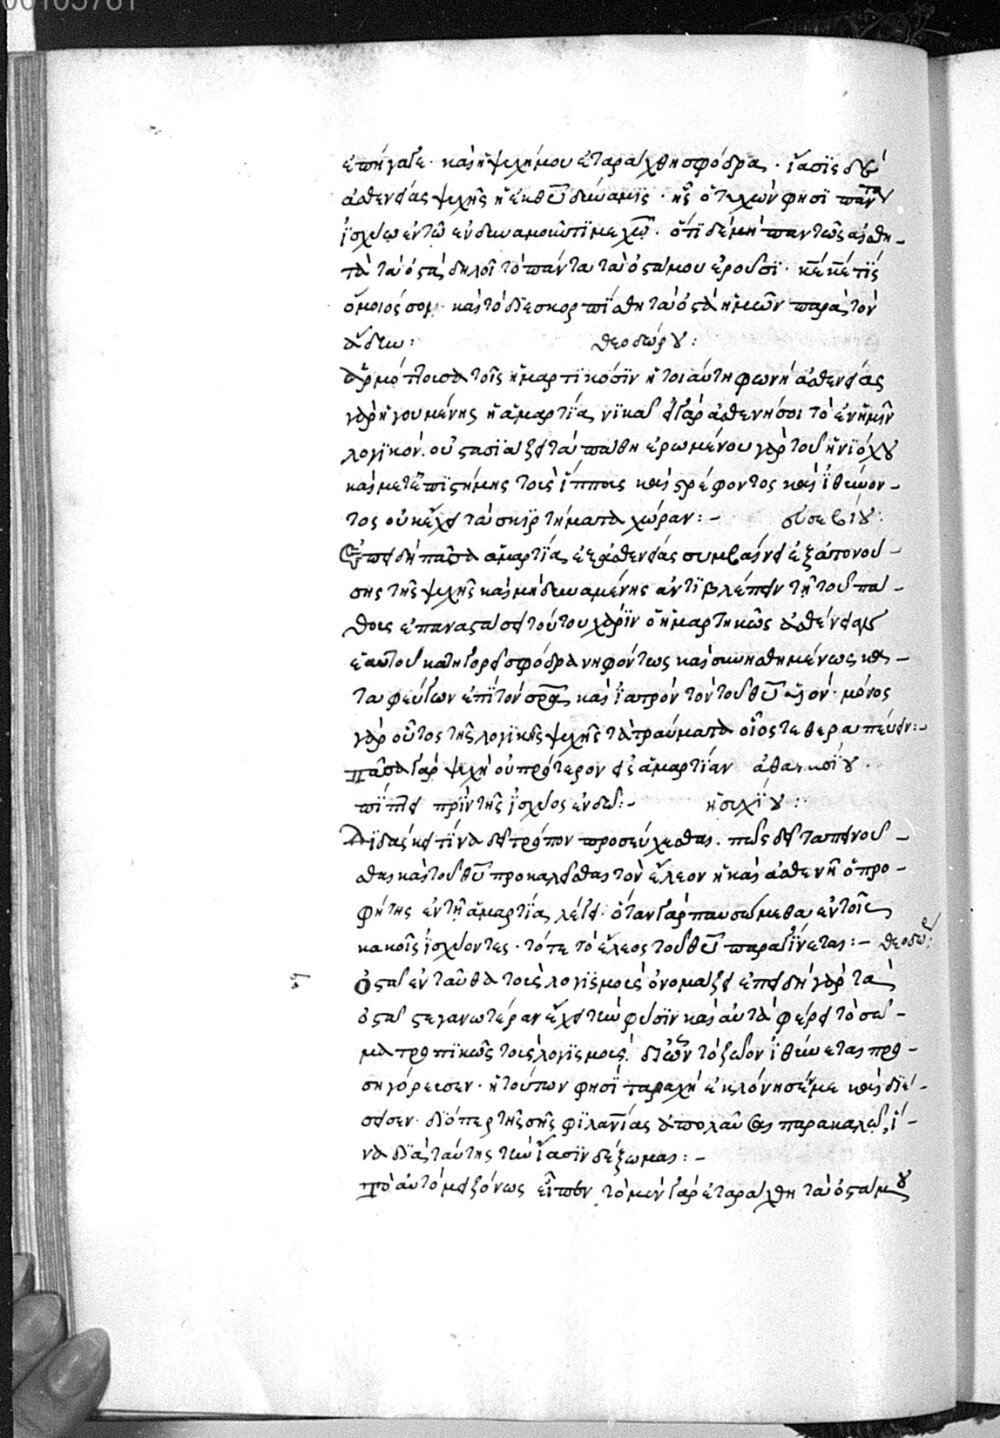 00105761
ἐπήγαγε· καὶ ἡ ψυχή μου ἐταράχθη σφόδρα· ἴασις δὲ
ἀσθενείας ψυχῆς ἡ ἐκ θῦ δύναμις· ἧς ὁ τυχὼν φησὶ πάντα
ἰσχύω ἐν τῷ ἐνδυναμοῦντί με χῶ· ὅτι δὲ μὴ πάντως αἰσθη-
τὰ τὰ ὀστᾶ, δηλοῖ τὸ πάντα τὰ ὀστᾶ μου ἐροῦσι· κε κε τίς
ὅμοιός σοι· καὶ τὸ διεσκορπίσθη τὰ ὀστᾶ ἡμῶν παρὰ τὸν
ἅδην: θεοδώρου:
ἁρμόττουσα τοῖς ἡμαρτικόσιν ἡ τοιαύτη φωνὴ ἀσθενείας
γὰρ ἡγουμένης ἡ ἁμαρτία νικᾶ εἰ γὰρ ἀσθενήσοι τὸ ἐν ἡμῖν
λογικόν. οὐ στασιάζει τὰ πάθη ἐρρωμένου γὰρ τοῦ ἡνιόχου
καὶ μετ' ἐπιστήμης τοὺς ἵππους καὶ στρέφοντος καὶ ἰθύνον-
τος οὐκ ἔχει τὰ σκιρτήματα χώραν:- εὐσεβίου:
Ἐπειδὴ πᾶσα ἁμαρτία ἐξ ἀσθενείας συμβαίνει ἐξατονού-
σης τῆς ψυχῆς καὶ μὴ δυναμένης ἀντιβλέπειν τῇ τοῦ πά-
θους ἐπαναστάσει τούτου χάριν ὁ ἡμαρτηκὼς ἀσθένειαν
ἑαυτοῦ κατηγορεῖ σφόδρα νηφόντως καὶ συνησθημένως κα-
ταφεύγων ἐπὶ τὸν σρα καὶ ἰατρὸν τὸν τοῦ θῦ λόγον· μόνος
γὰρ οὗτος τῆς λογικῆς ψυχῆς τὰ τραύματα οἷός τε θεραπεύειν:-
Πᾶσα γὰρ ψυχὴ οὐ πρότερον εἰς ἁμαρτίαν ἀθανασίου·
πίπτει πρὶν τῆς ἰσχύος ἐνδῶ:- ἡσυχίου:
Διδάσκει τίνα δεῖ τρόπον προσεύχεσθαι. πῶς δεῖ ταπεινοῦ-
σθαι καὶ τοῦ θῦ προκαλεῖσθαι τὸν ἔλεον ἢ καὶ ἀσθενῆ ὁ προ-
φήτης ἐν τῇ ἁμαρτία λέγει· ὅταν γὰρ παυσώμεθα ἐν τοῖς
κακοῖς ἰσχύοντες· τότε τὸ ἔλεος τοῦ θῦ παραγίνεται:- θεοδώ:
Ὀστᾶ ἐνταῦθα τοὺς λογισμοὺς ὀνομάζει ἐπειδὴ γὰρ τὰ
ὀστᾶ στεγανωτέραν ἔχει τὴν φύσιν καὶ αὐτὰ φέρει τὸ σῶ-
μα τροπικῶς τοὺς λογισμοὺς. δι' ὧν τὸ ζῶον ἰθύνεται προ-
σηγόρευσεν· ἡ τοίνυν φησὶ ταραχὴ ἐκλόνησέ με καὶ διέ-
σεισεν· διόπερ τῆς σῆς φιλανίας ἀπολαῦσαι παρακαλῶ, ἵ-
να διὰ ταύτης τὴν ἴασιν δέξωμαι:-
Τὸ αὐτὸ μειζόνως εἶπεν, τὸ μὲν γὰρ ἐταράχθη τὰ ὀστᾶ μου